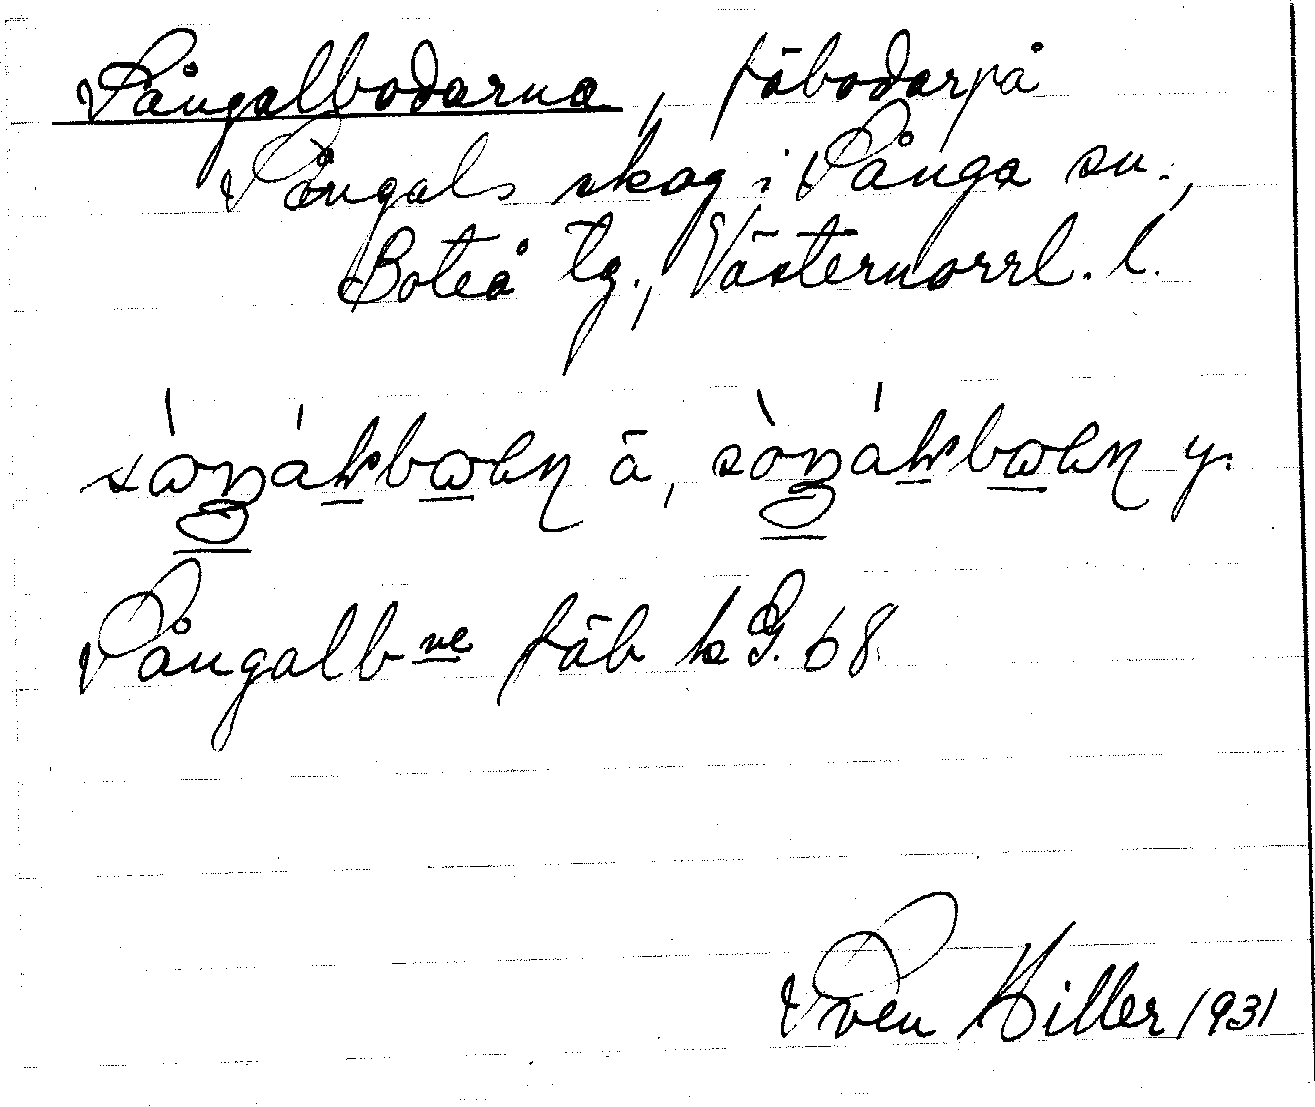 Sångalbodarna, fäbodar på
Sångals skog i Sånga sn.,
Boteå tg., Västernorrl. l.
ä, y.
Sångalbne fäb k G. 68
Sven Hiller 1931